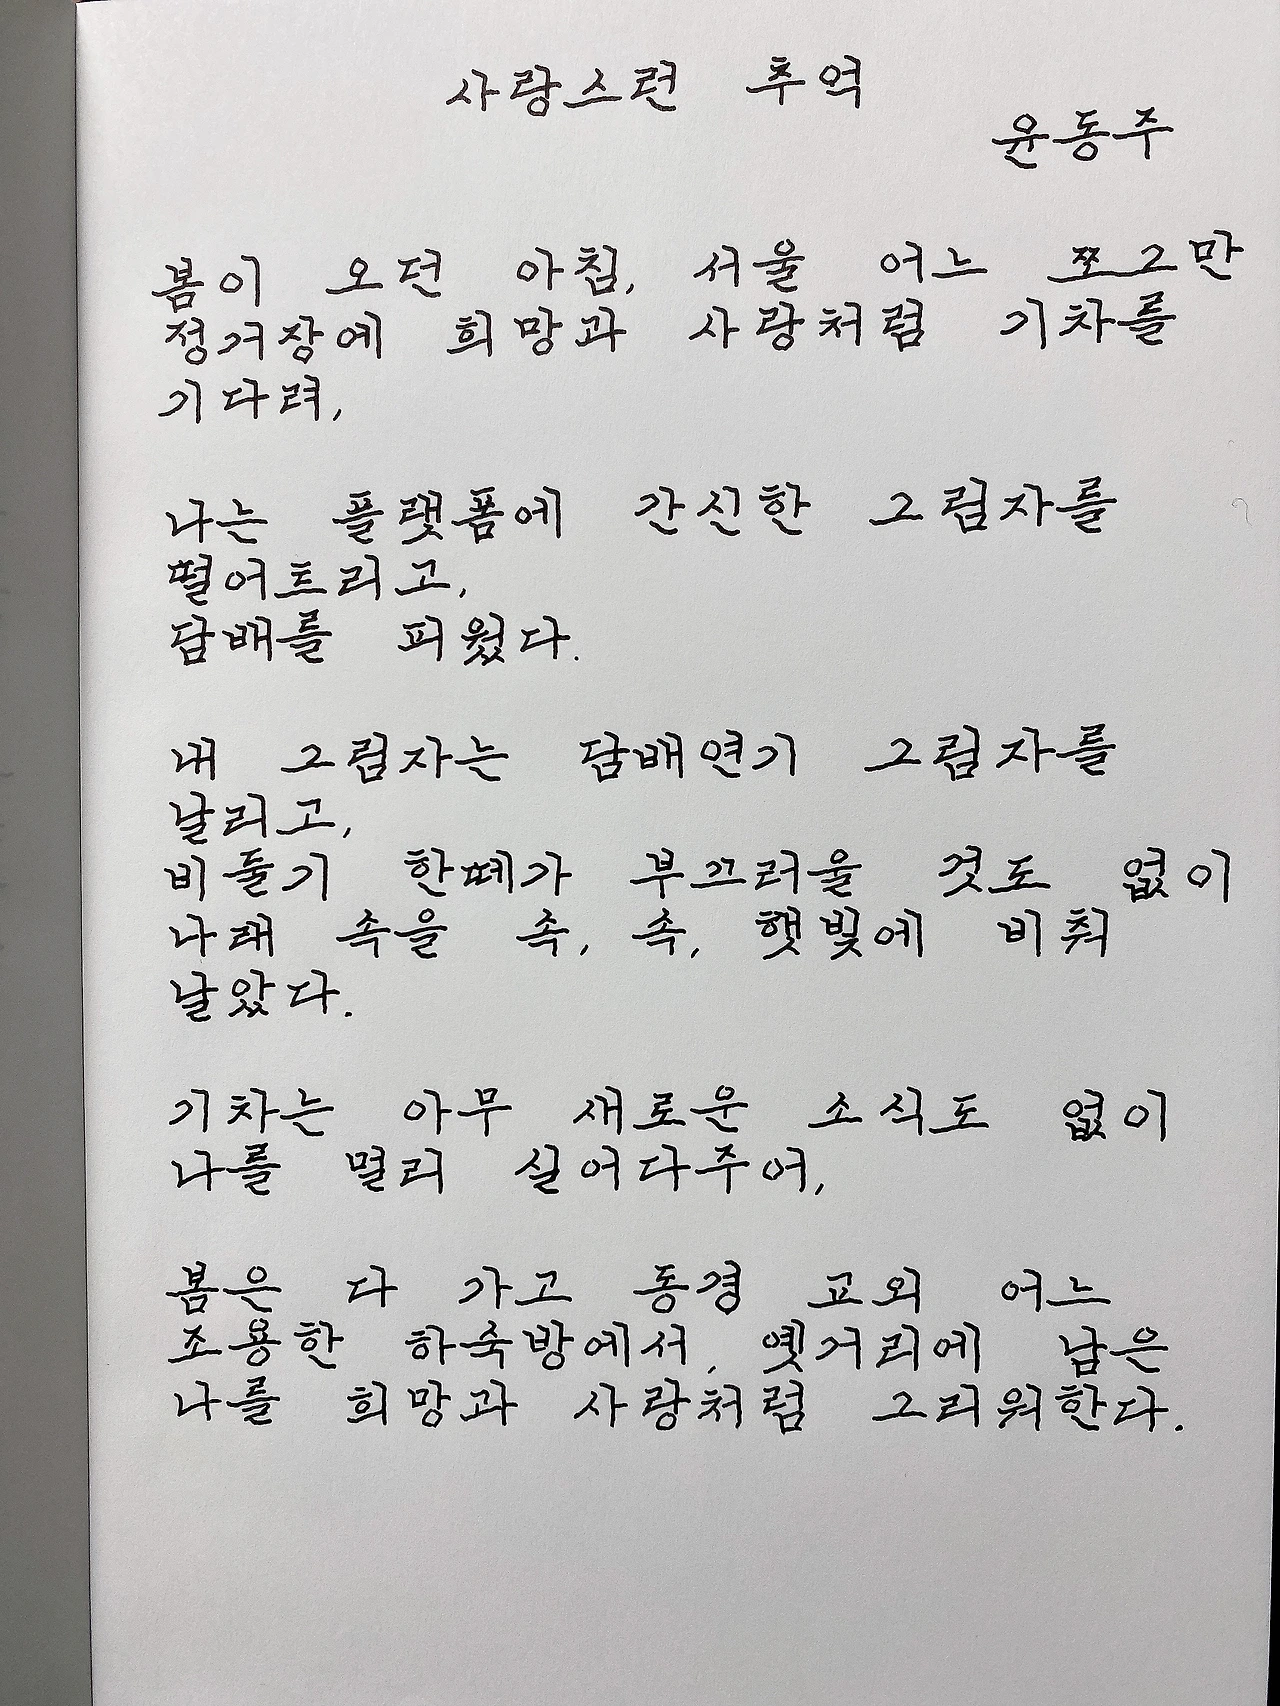 사랑스런 추억
윤동주
봄이 오던 아침, 서울 어느 쪼그만
정거장에 희망과 사랑처럼 기차를
기다려,
나는 플랫폼에 간신한 그림자를
떨어트리고,
담배를 피웠다.
내 그림자는 담배연기 그림자를
날리고,
비둘기 한떼가 부끄러울 것도 없이
나래 속을 속, 속, 햇빛에 비춰
날았다.
기차는 아무 새로운 소식도 없이
나를 멀리 실어다주어,
봄은 다 가고 동경 교외 어느
조용한 하숙방에서, 옛거리에 남은
나를 희망과 사랑처럼 그리워한다.